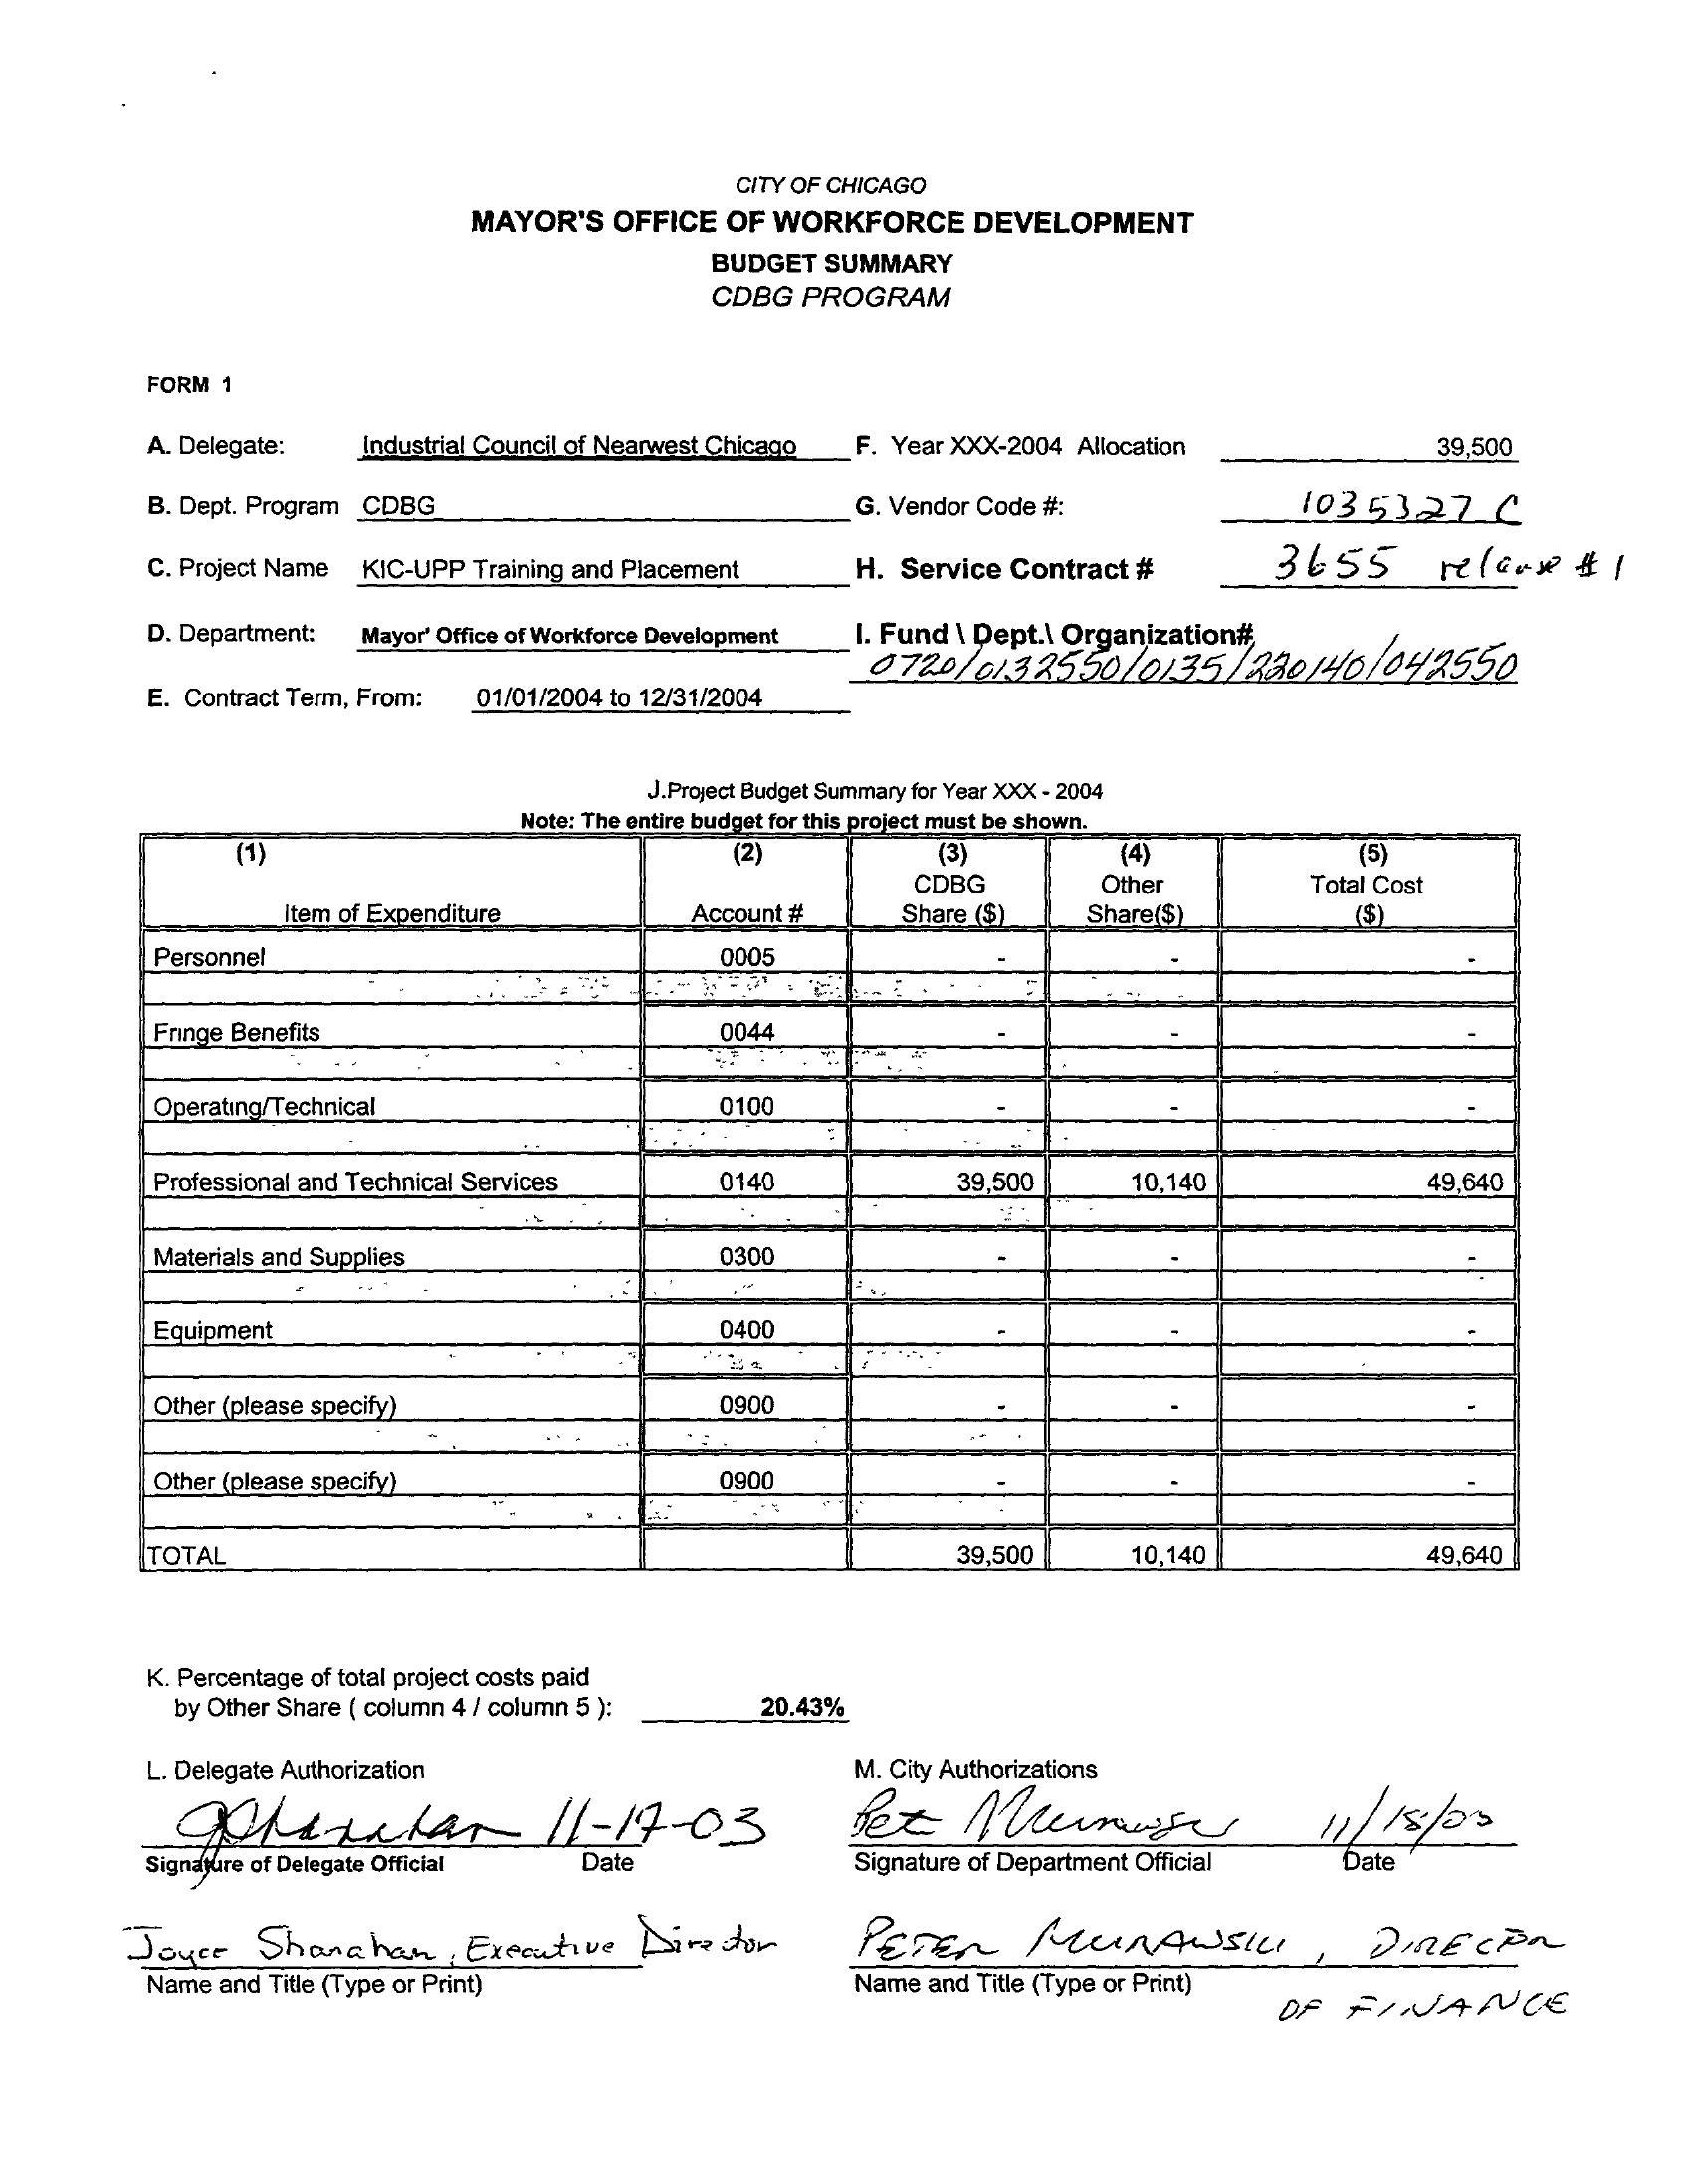 CITY OF CHICAGO
MAYOR'S OFFICE OF WORKFORCE DEVELOPMENT
BUDGET SUMMARY
CDBG PROGRAM
FORM 1
A. Delegate: Industrial Council of Nearwest Chicago F. Year XXX-2004 Allocation 39,500
B. Dept. Program CDBG G. Vendor Code #: 1035327 C
C. Project Name KIC-UPP Training and Placement H. Service Contract # 3655 release # 1
D. Department: Mayor' Office of Workforce Development I. Fund \ Dept.\ Organization#
0720/0132550/0135/220140/042550
E. Contract Term, From: 01/01/2004 to 12/31/2004
J.Project Budget Summary for Year XXX - 2004
Note: The entire budget for this project must be shown.
(1) (2) (3) (4) (5)
CDBG Other Total Cost
Item of Expenditure Account # Share ($) Share($) ($)
Personnel 0005 - - -
Fringe Benefits 0044 - - -
Operating/Technical 0100 - - -
Professional and Technical Services 0140 39,500 10,140 49,640
Materials and Supplies 0300 - - -
Equipment 0400 - - -
Other (please specify) 0900 - - -
Other (please specify) 0900 - - -
TOTAL 39,500 10,140 49,640
K. Percentage of total project costs paid
by Other Share ( column 4 / column 5 ): 20.43%
L. Delegate Authorization M. City Authorizations
JShanahan 11-17-03 Pet Murawski 11/18/03
Signature of Delegate Official Date Signature of Department Official Date
Joyce Shanahan, Executive Director PETER MURAWSKI, DIRECTOR
Name and Title (Type or Print) Name and Title (Type or Print)
OF FINANCE